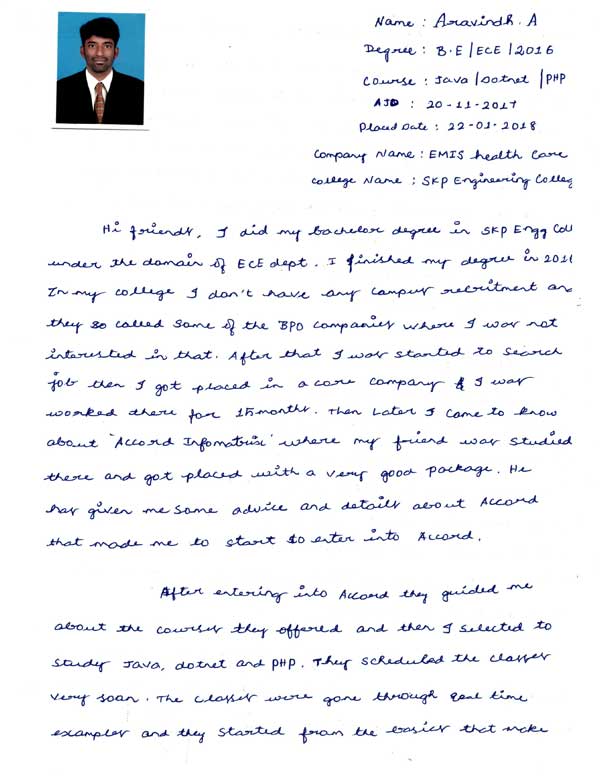 Name : Aravindh. A
Degree : B.E / ECE / 2016
Course : Java / Dotnet / PHP
AJD : 20-11-2017
Placed Date : 22-01-2018
Company Name : EMIS health Care
College Name : SKP Engineering Colleg
Hi friends, I did my bachelor degree in SKP Engg Col
under the domain of ECE dept. I finished my degree in 201
In my college I don't have any campus recruitment an
they so called some of the BPO companies where I was not
interested in that. After that I was started to search
job then I got placed in a core company & I was
worked there for 15 months. Then Later I came to know
about 'Accord Infomatrix' where my friend was studied
there and got placed with a very good package. He
has given me some advice and details about Accord
that made me to start to enter into Accord.
After entering into Accord they guided me
about the courses they offered and then I selected to
study Java, dotnet and PHP. They scheduled the classes
very soon. The classes were gone through real time
examples and they started from the basics that make